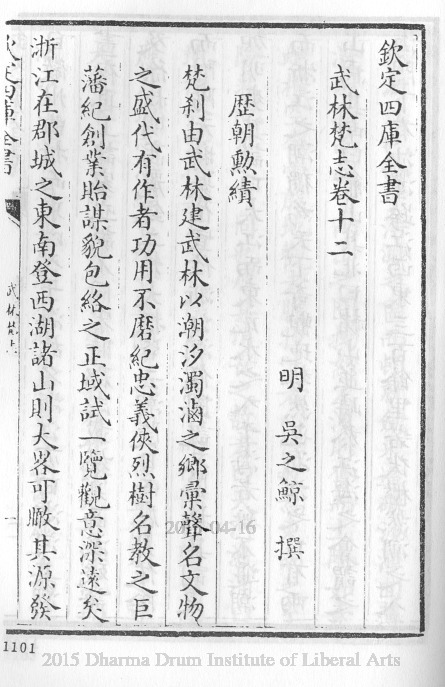 欽定四庫全書
武林梵志卷十二
明 吳之鯨 撰
歴朝勲績
梵刹由武林建武林以潮汐濁滷之鄉彚聲名文物
之盛代有作者功用不磨紀忠義俠烈樹名教之巨
藩紀創業貽謀貌包絡之正域試一覽觀意深遠矣
浙江在郡城之東南登西湖諸山則大畧可瞰其源發
欽定四庫全書
武林梵志
1101
2015-04-16
2015 Dharma Drum Institute of Liberal Arts